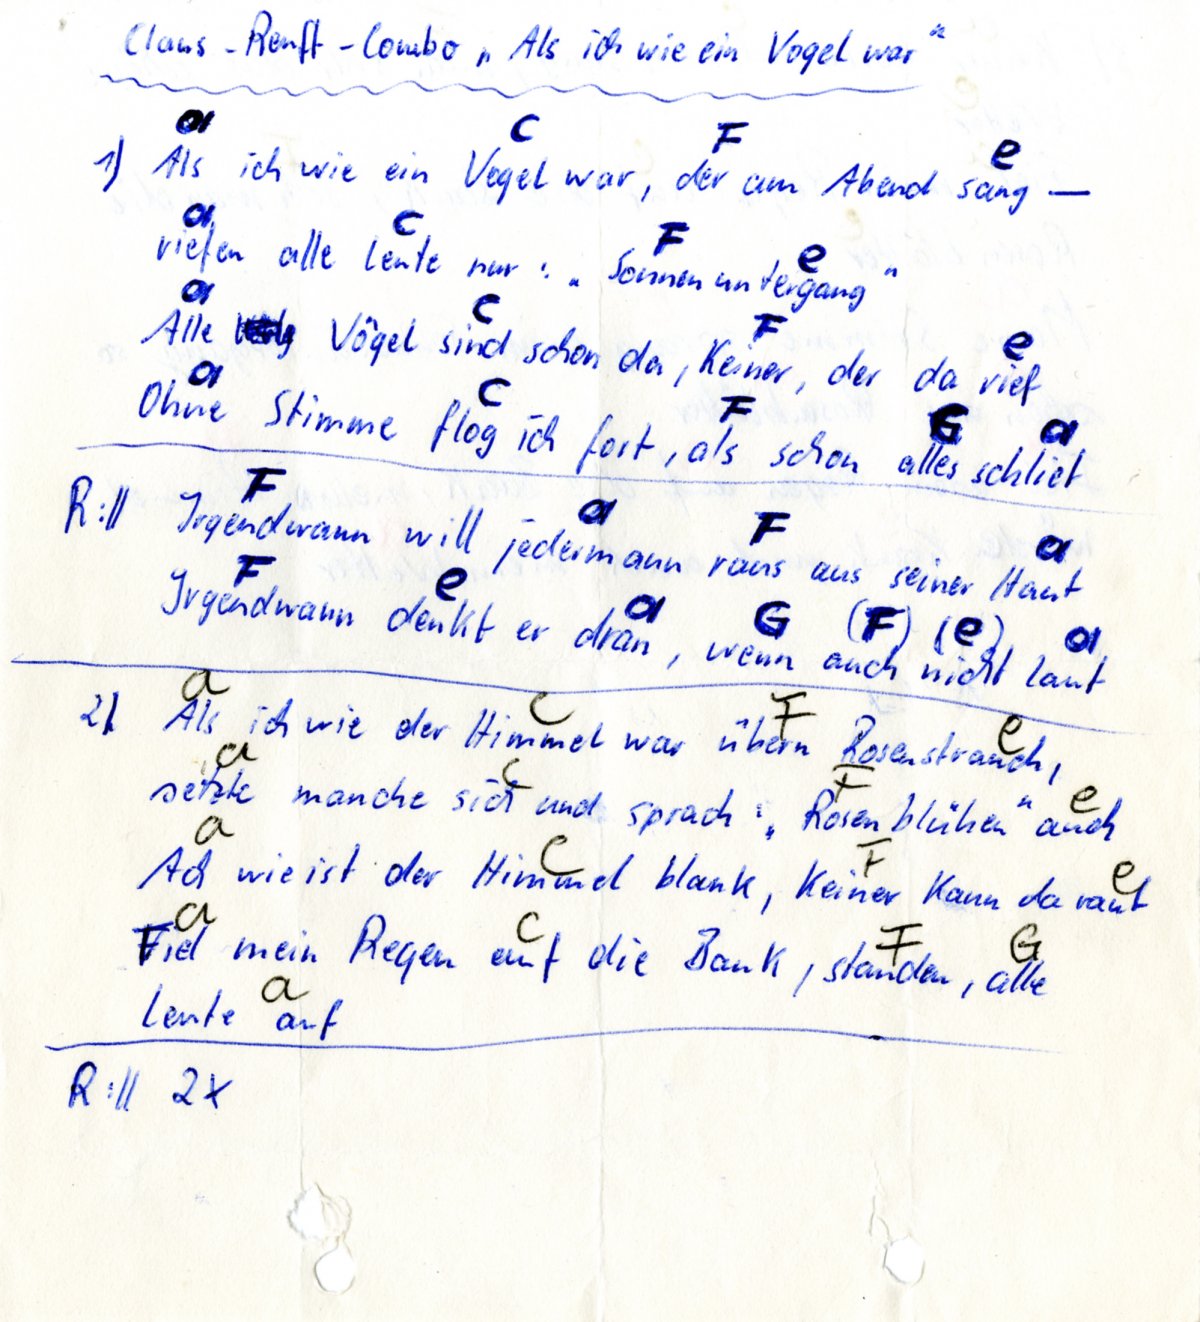 Claus-Renft-Combo „Als ich wie ein Vogel war"
a C F e
1) Als ich wie ein Vogel war, der am Abend sang —
a C F e
riefen alle Leute nur: „Sonnenuntergang"
a C F e
Alle Vögel sind schon da, Keiner, der da rief
a C F G a
Ohne Stimme flog ich fort, als schon alles schlief
F a F a
R:|| Irgendwann will jedermann raus aus seiner Haut
F e a G (F) (e) a
Irgendwann denkt er dran, wenn auch nicht laut
a C F e
2) Als ich wie der Himmel war übern Rosenstrauch,
a C F e
setzte manche sich und sprach: „Rosen blühen" auch
a C F e
Ach wie ist der Himmel blank, Keiner kann da rauf
a C F G
Fiel mein Regen auf die Bank, standen, alle
a
Leute auf
R:|| 2x